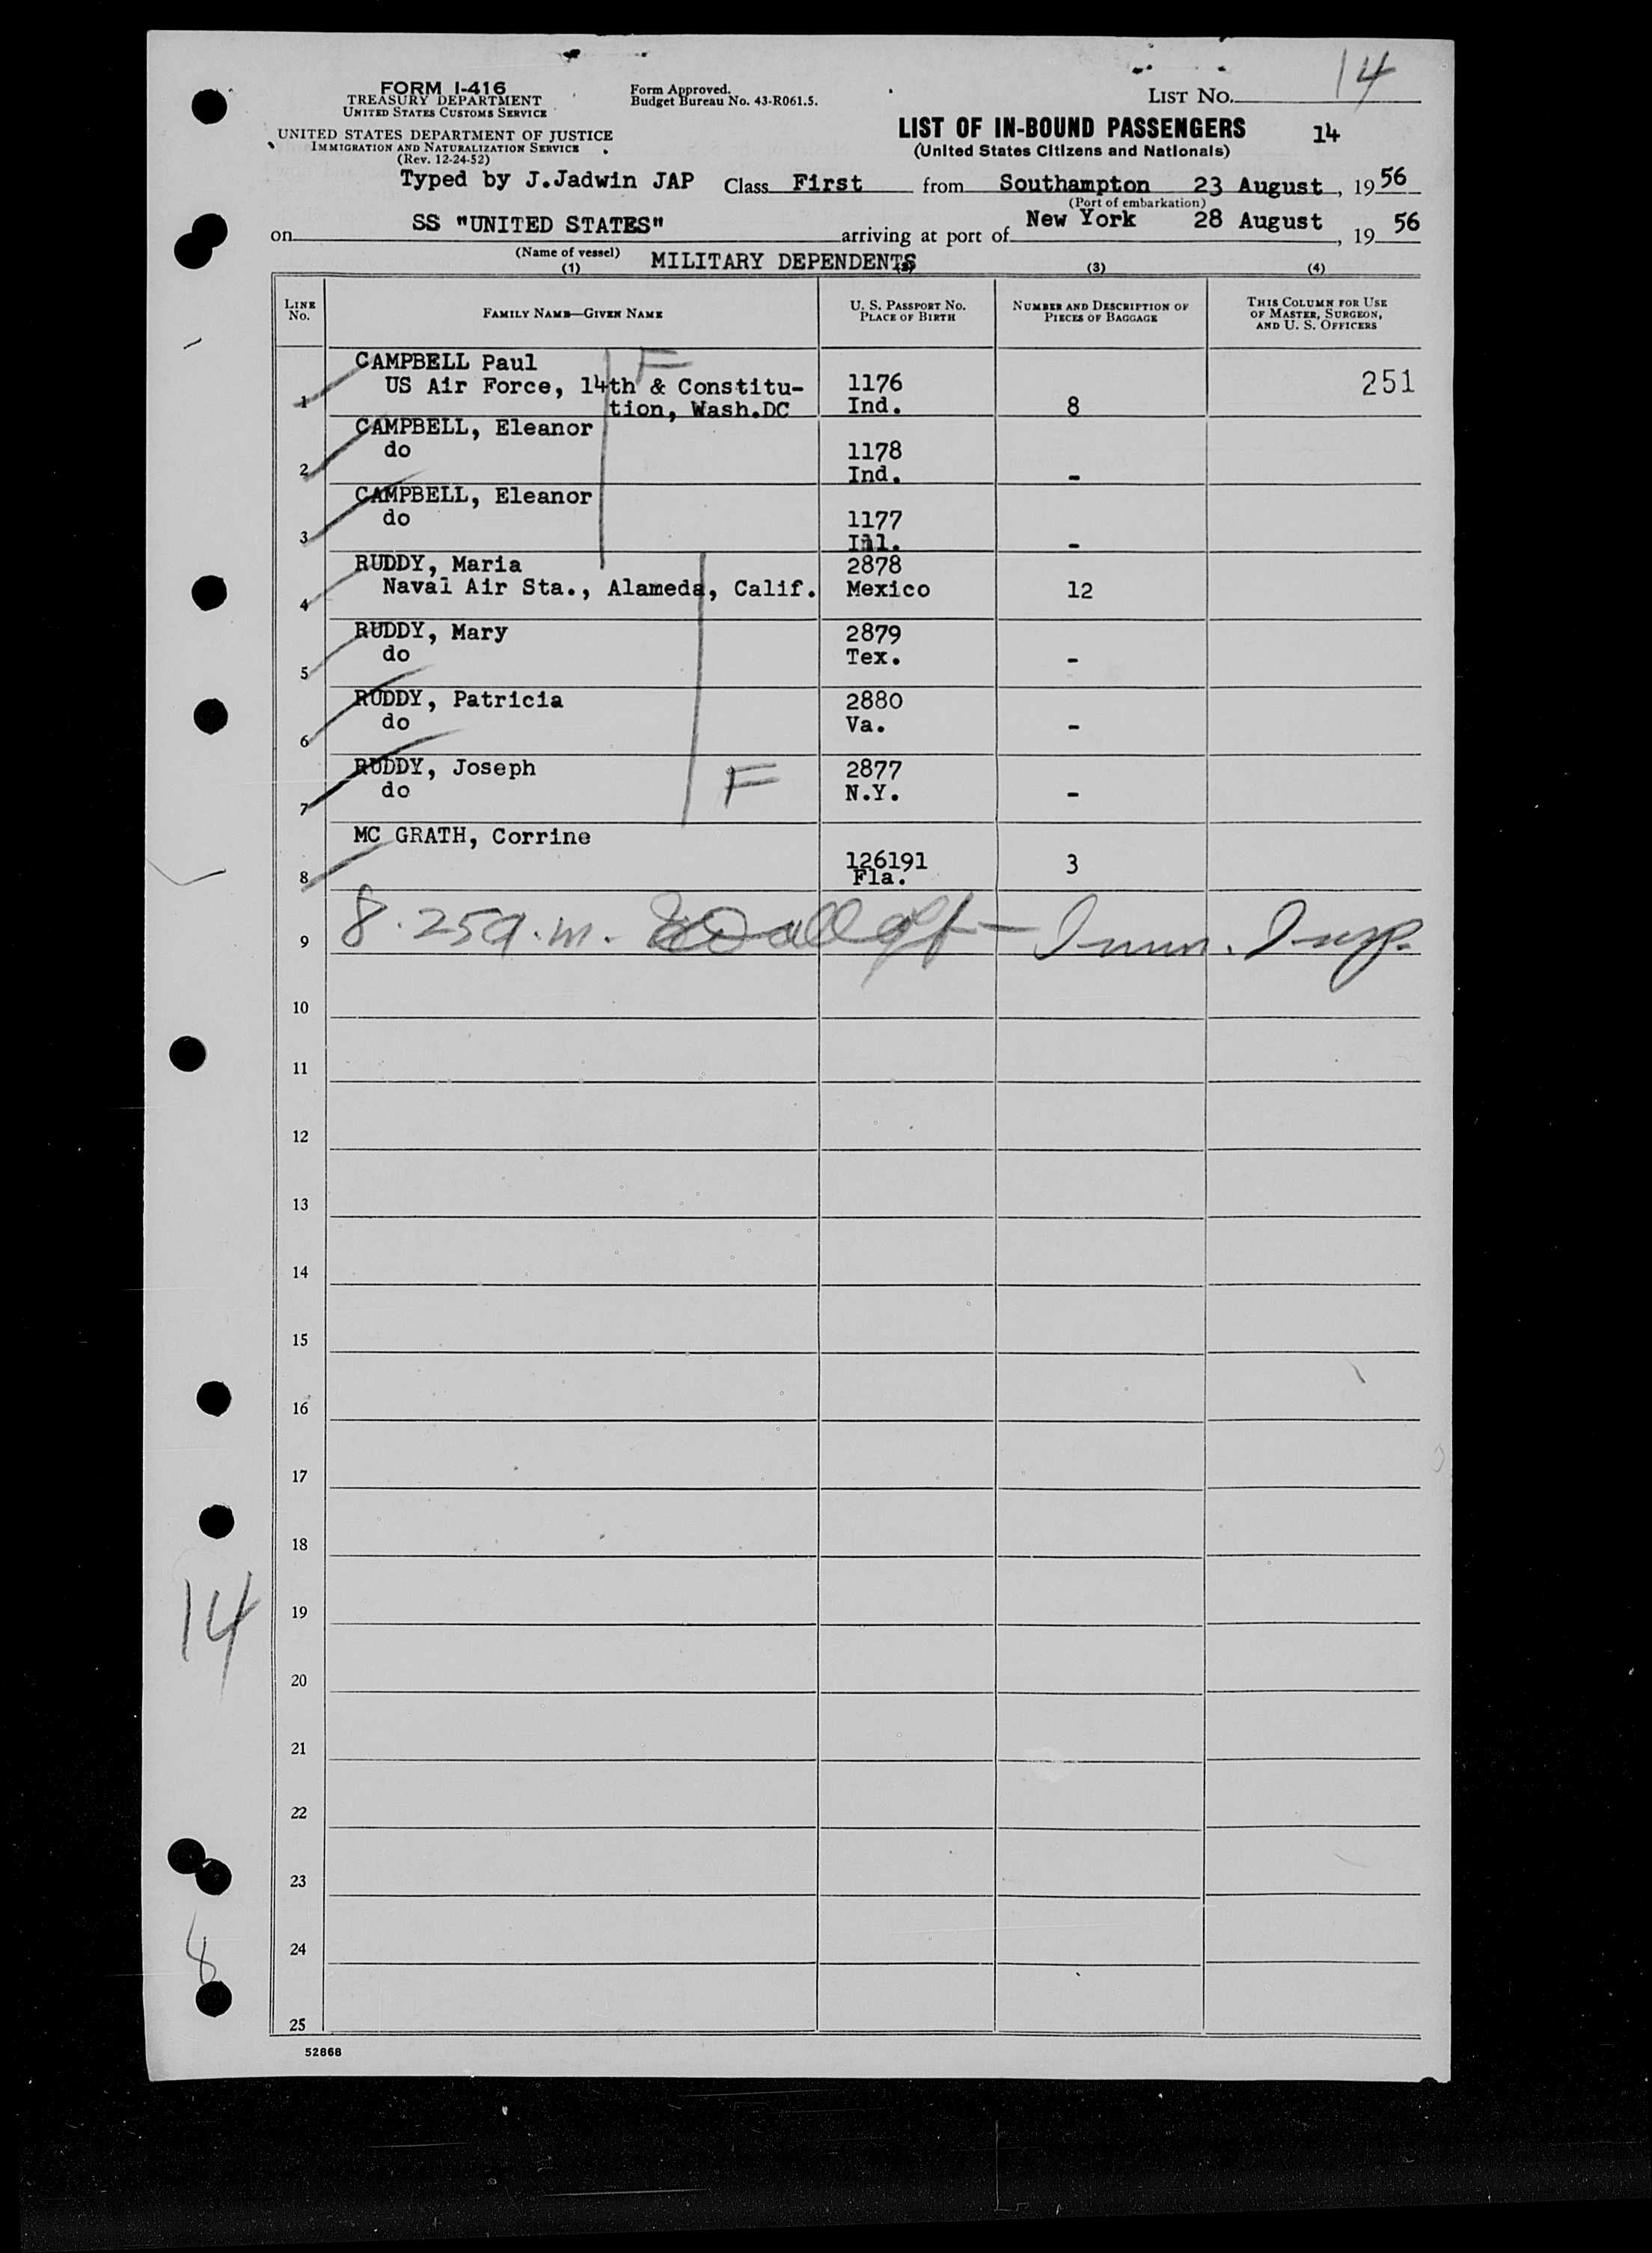 14
FORM I-416
TREASURY DEPARTMENT
UNITED STATES CUSTOMS SERVICE
Form Approved.
Budget Bureau No. 43-R061.5.
LIST NO.
UNITED STATES DEPARTMENT OF JUSTICE
IMMIGRATION AND NATURALIZATION SERVICE
(Rev. 12-24-52)
LIST OF IN-BOUND PASSENGERS 14
(United States Citizens and Nationals)
Typed by J.Jadwin JAP Class First from Southampton 23 August, 19 56
(Port of embarkation)
on SS "UNITED STATES" arriving at port of New York 28 August, 19 56
(Name of vessel)
MILITARY DEPENDENTS
(1) (2) (3) (4)
LINE No. FAMILY NAME—GIVEN NAME U. S. PASSPORT NO. PLACE OF BIRTH NUMBER AND DESCRIPTION OF PIECES OF BAGGAGE THIS COLUMN FOR USE OF MASTER, SURGEON, AND U. S. OFFICERS
CAMPBELL Paul F
US Air Force, 14th & Constitu- 1176 251
1 tion, Wash.DC Ind. 8
CAMPBELL, Eleanor
do 1178
2 Ind. -
CAMPBELL, Eleanor
do 1177
3 Ill. -
RUDDY, Maria 2878
4 Naval Air Sta., Alameda, Calif. Mexico 12
RUDDY, Mary 2879
5 do Tex. -
RUDDY, Patricia 2880
6 do Va. -
RUDDY, Joseph 2877
7 do F N.Y. -
MC GRATH, Corrine
8 126191 3
Fla.
9 8.25 a.m. all off - Imm. Insp.
10
11
12
13
14
15
16
17
18
14
19
20
21
22
23
24
8
25
52868